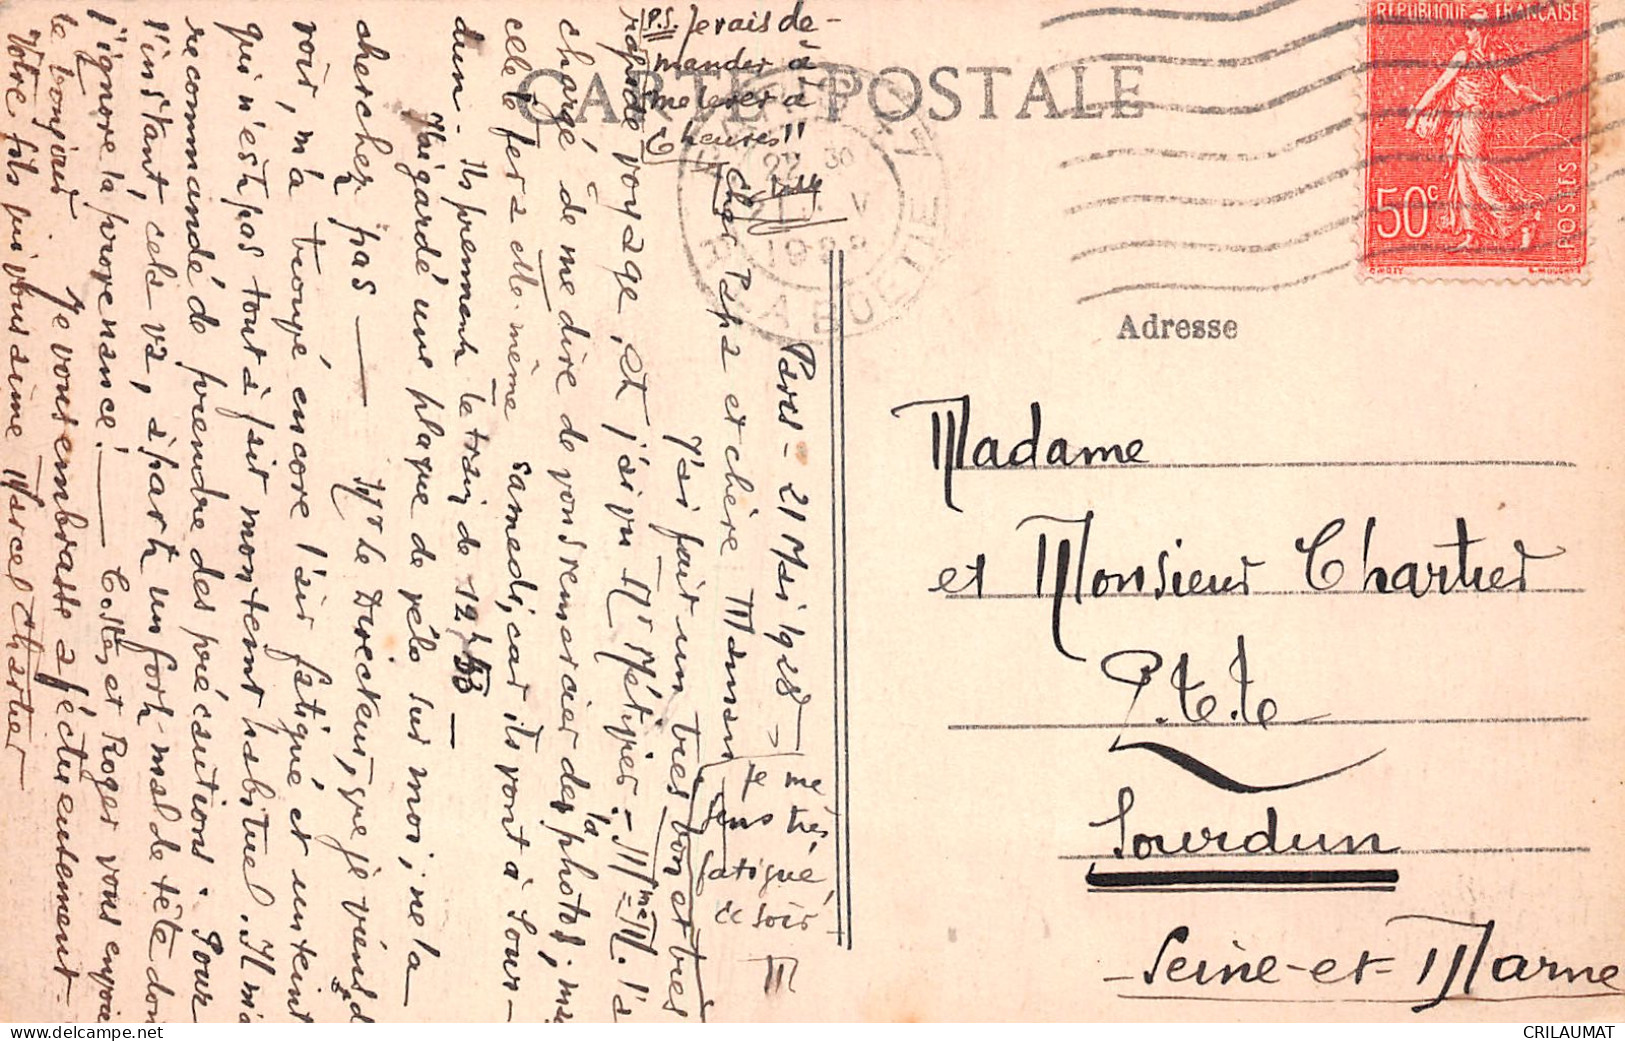 CARTE POSTALE
RÉPUBLIQUE FRANÇAISE
50c
POSTES
O. ROTY
E. MOUCHON
30
V
1928
LA BOETIE
Adresse
Madame
et Monsieur Chartier
P.T.T.
Sourdun
Seine-et-Marne
P.S. Je vais de-
mander à
me lever à
6 heures !!
Paris - 21 Mai 1928
cher Papa et chère Maman
J'ai fait un très bon et très
rapide voyage, et j'ai vu Mr Métivier - Mme M. l'a
chargé de me dire de vous remercier de la photo ; ma
elle le fera elle même samedi, car ils vont à Sour-
dun - Ils prennent le train de 12h53 -
J'ai gardé une plaque de vélo sur moi ; ne la
cherchez pas - Mr le Directeur, que je viens d
voir, m'a trouvé encore l'air fatigué et un teint
qui n'est pas tout à fait mon teint habituel. Il m'a
recommandé de prendre des précautions. Pour
l'instant, cela va, à part un fort mal de tête don
j'ignore la provenance ! - Costes et Roger vous envoie
le bonjour Je vous embrasse affectueusement -
Votre fils qui vous aime Marcel Chartier
Je me
sens très
fatigué,
ce soir
M
CRILAUMAT